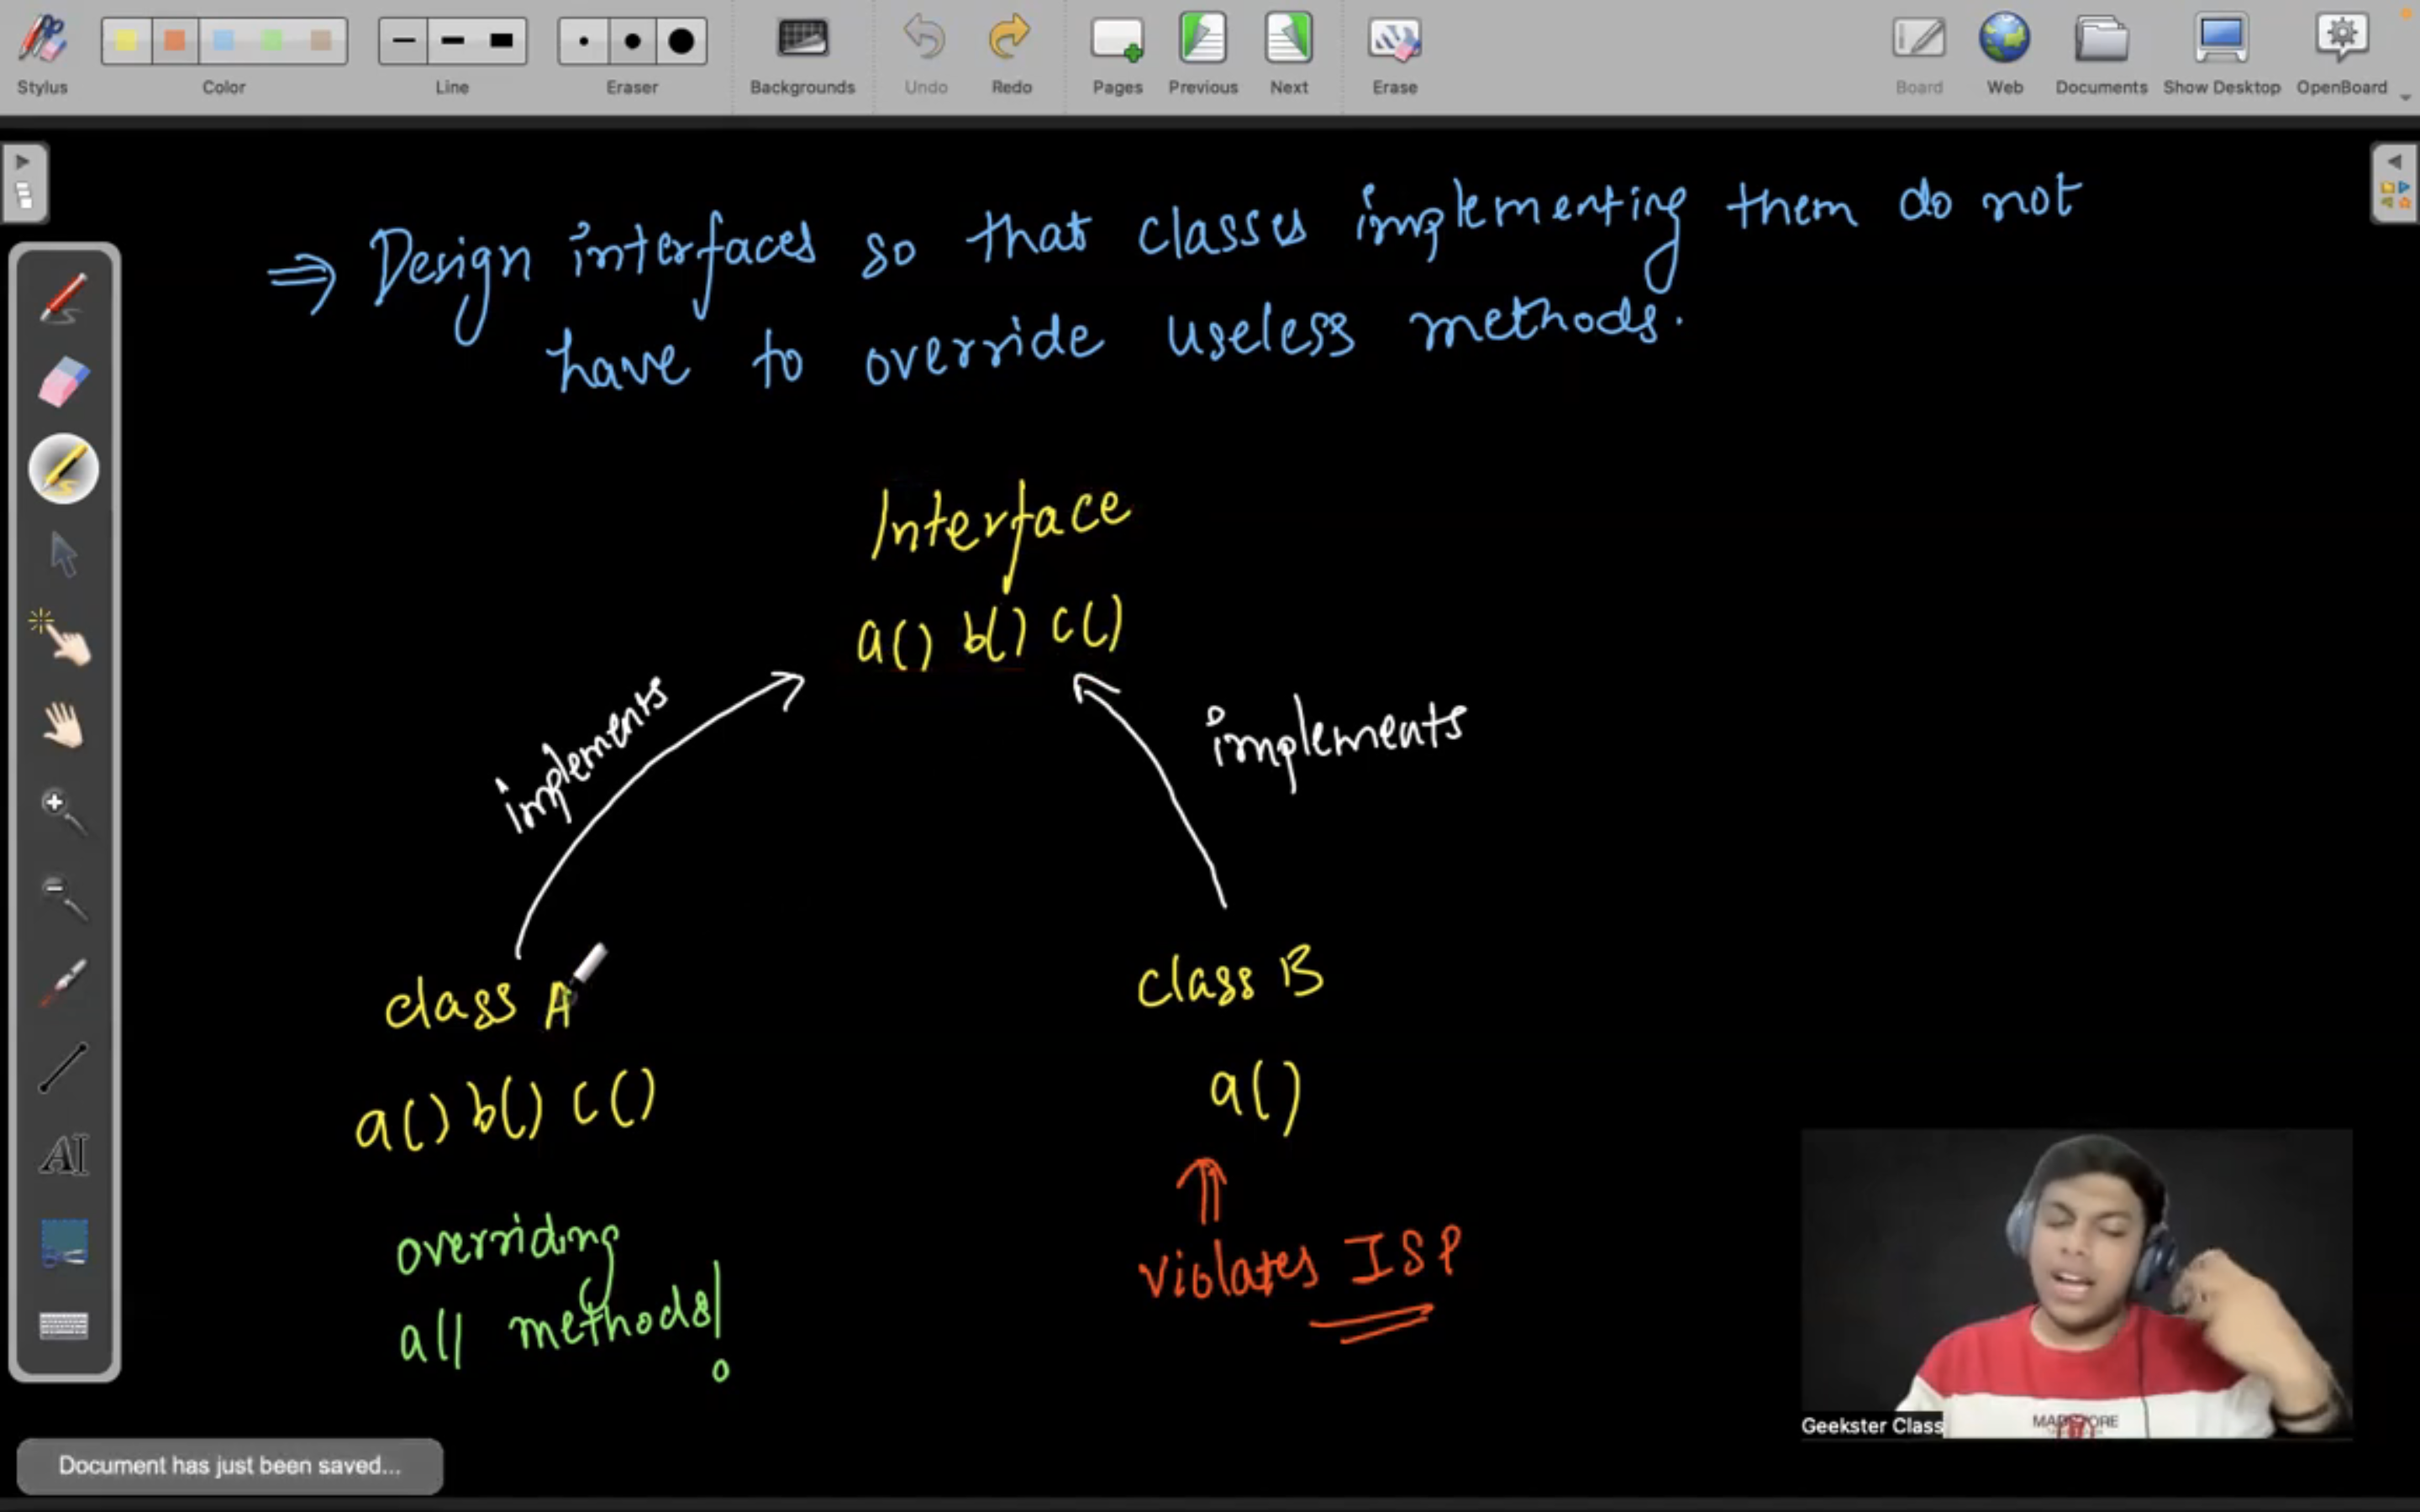 Stylus Color Line Eraser Backgrounds Undo Redo Pages Previous Next Erase Board Web Documents Show Desktop OpenBoard
⇒ Design interfaces so that classes implementing them do not
have to override useless methods.
Interface
a() b() c()
implements
implements
class A
class B
a() b() c()
a()
overriding
all methods!
violates ISP
AI
Geekster Class
Document has just been saved...